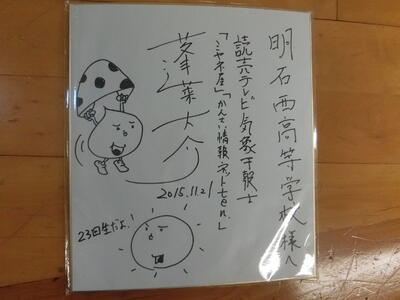 明石西高等学校様へ
読売テレビ気象予報士
「ミヤネ屋」「かんさい情報ネットten.」
蓬莱大介
2015.11.21
23回生だよ